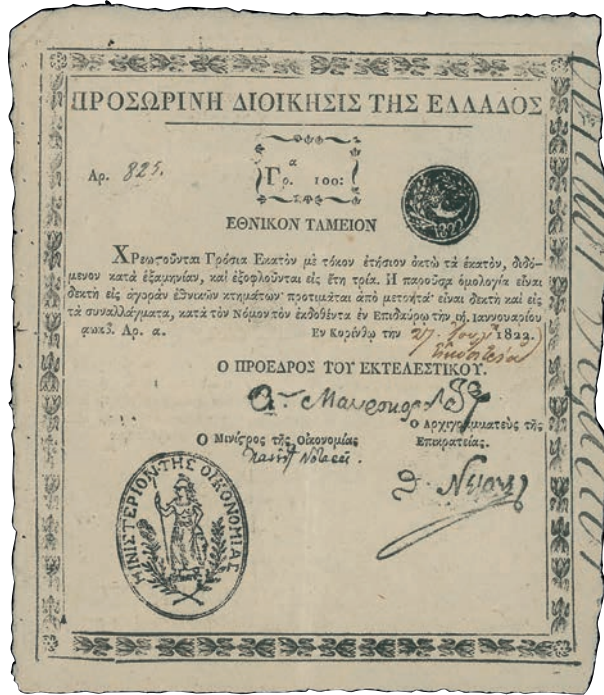 ΠΡΟΣΩΡΙΝΗ ΔΙΟΙΚΗΣΙΣ ΤΗΣ ΕΛΛΑΔΟΣ
Αρ. 825.
Γρ.α 100:
1822
ΕΘΝΙΚΟΝ ΤΑΜΕΙΟΝ
Χρεωστοῦνται Γρόσια Εκατὸν μὲ τόκον ἐτήσιον ὀκτὼ τὰ ἑκατὸν, διδό-
μενον κατὰ ἑξαμηνίαν, καὶ ἐξοφλοῦνται εἰς ἔτη τρία. Η παροῦσα ὁμολογία εἶναι
δεκτὴ εἰς ἀγορὰν ἐθνικῶν κτημάτων· προτιμᾶται ἀπὸ μετρητά· εἶναι δεκτὴ καὶ εἰς
τὰ συναλλάγματα, κατὰ τὸν Νόμον τὸν ἐκδοθέντα ἐν Επιδαύρῳ τὴν ιή. Ιαννουαρίου
αωκβ. Αρ. α. Εν Κορίνθῳ τὴν 27 1822.
Ο ΠΡΟΕΔΡΟΣ ΤΟΥ ΕΚΤΕΛΕΣΤΙΚΟΥ.
Ο Αρχιγραμματεὺς τῆς
Επικρατείας.
Ο Μινίστρος τῆς Οἰκονομίας
ΜΙΝΙΣΤΕΡΙΟΝ ΤΗΣ ΟΙΚΟΝΟΜΙΑΣ